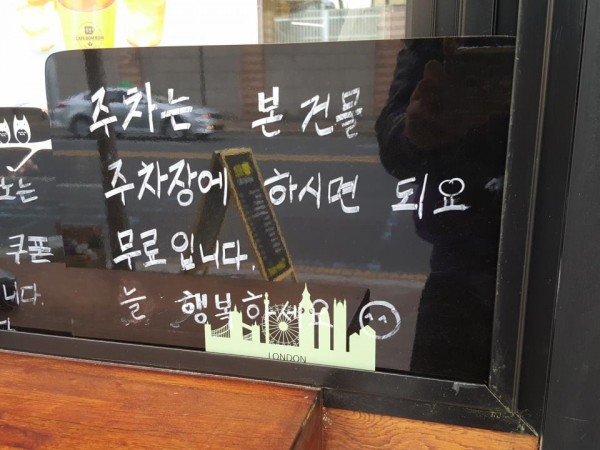 주차는 본 건물
주차장에 하시면 되요
무료입니다.
늘 행복하세요
노는
쿠폰
니다.
LONDON